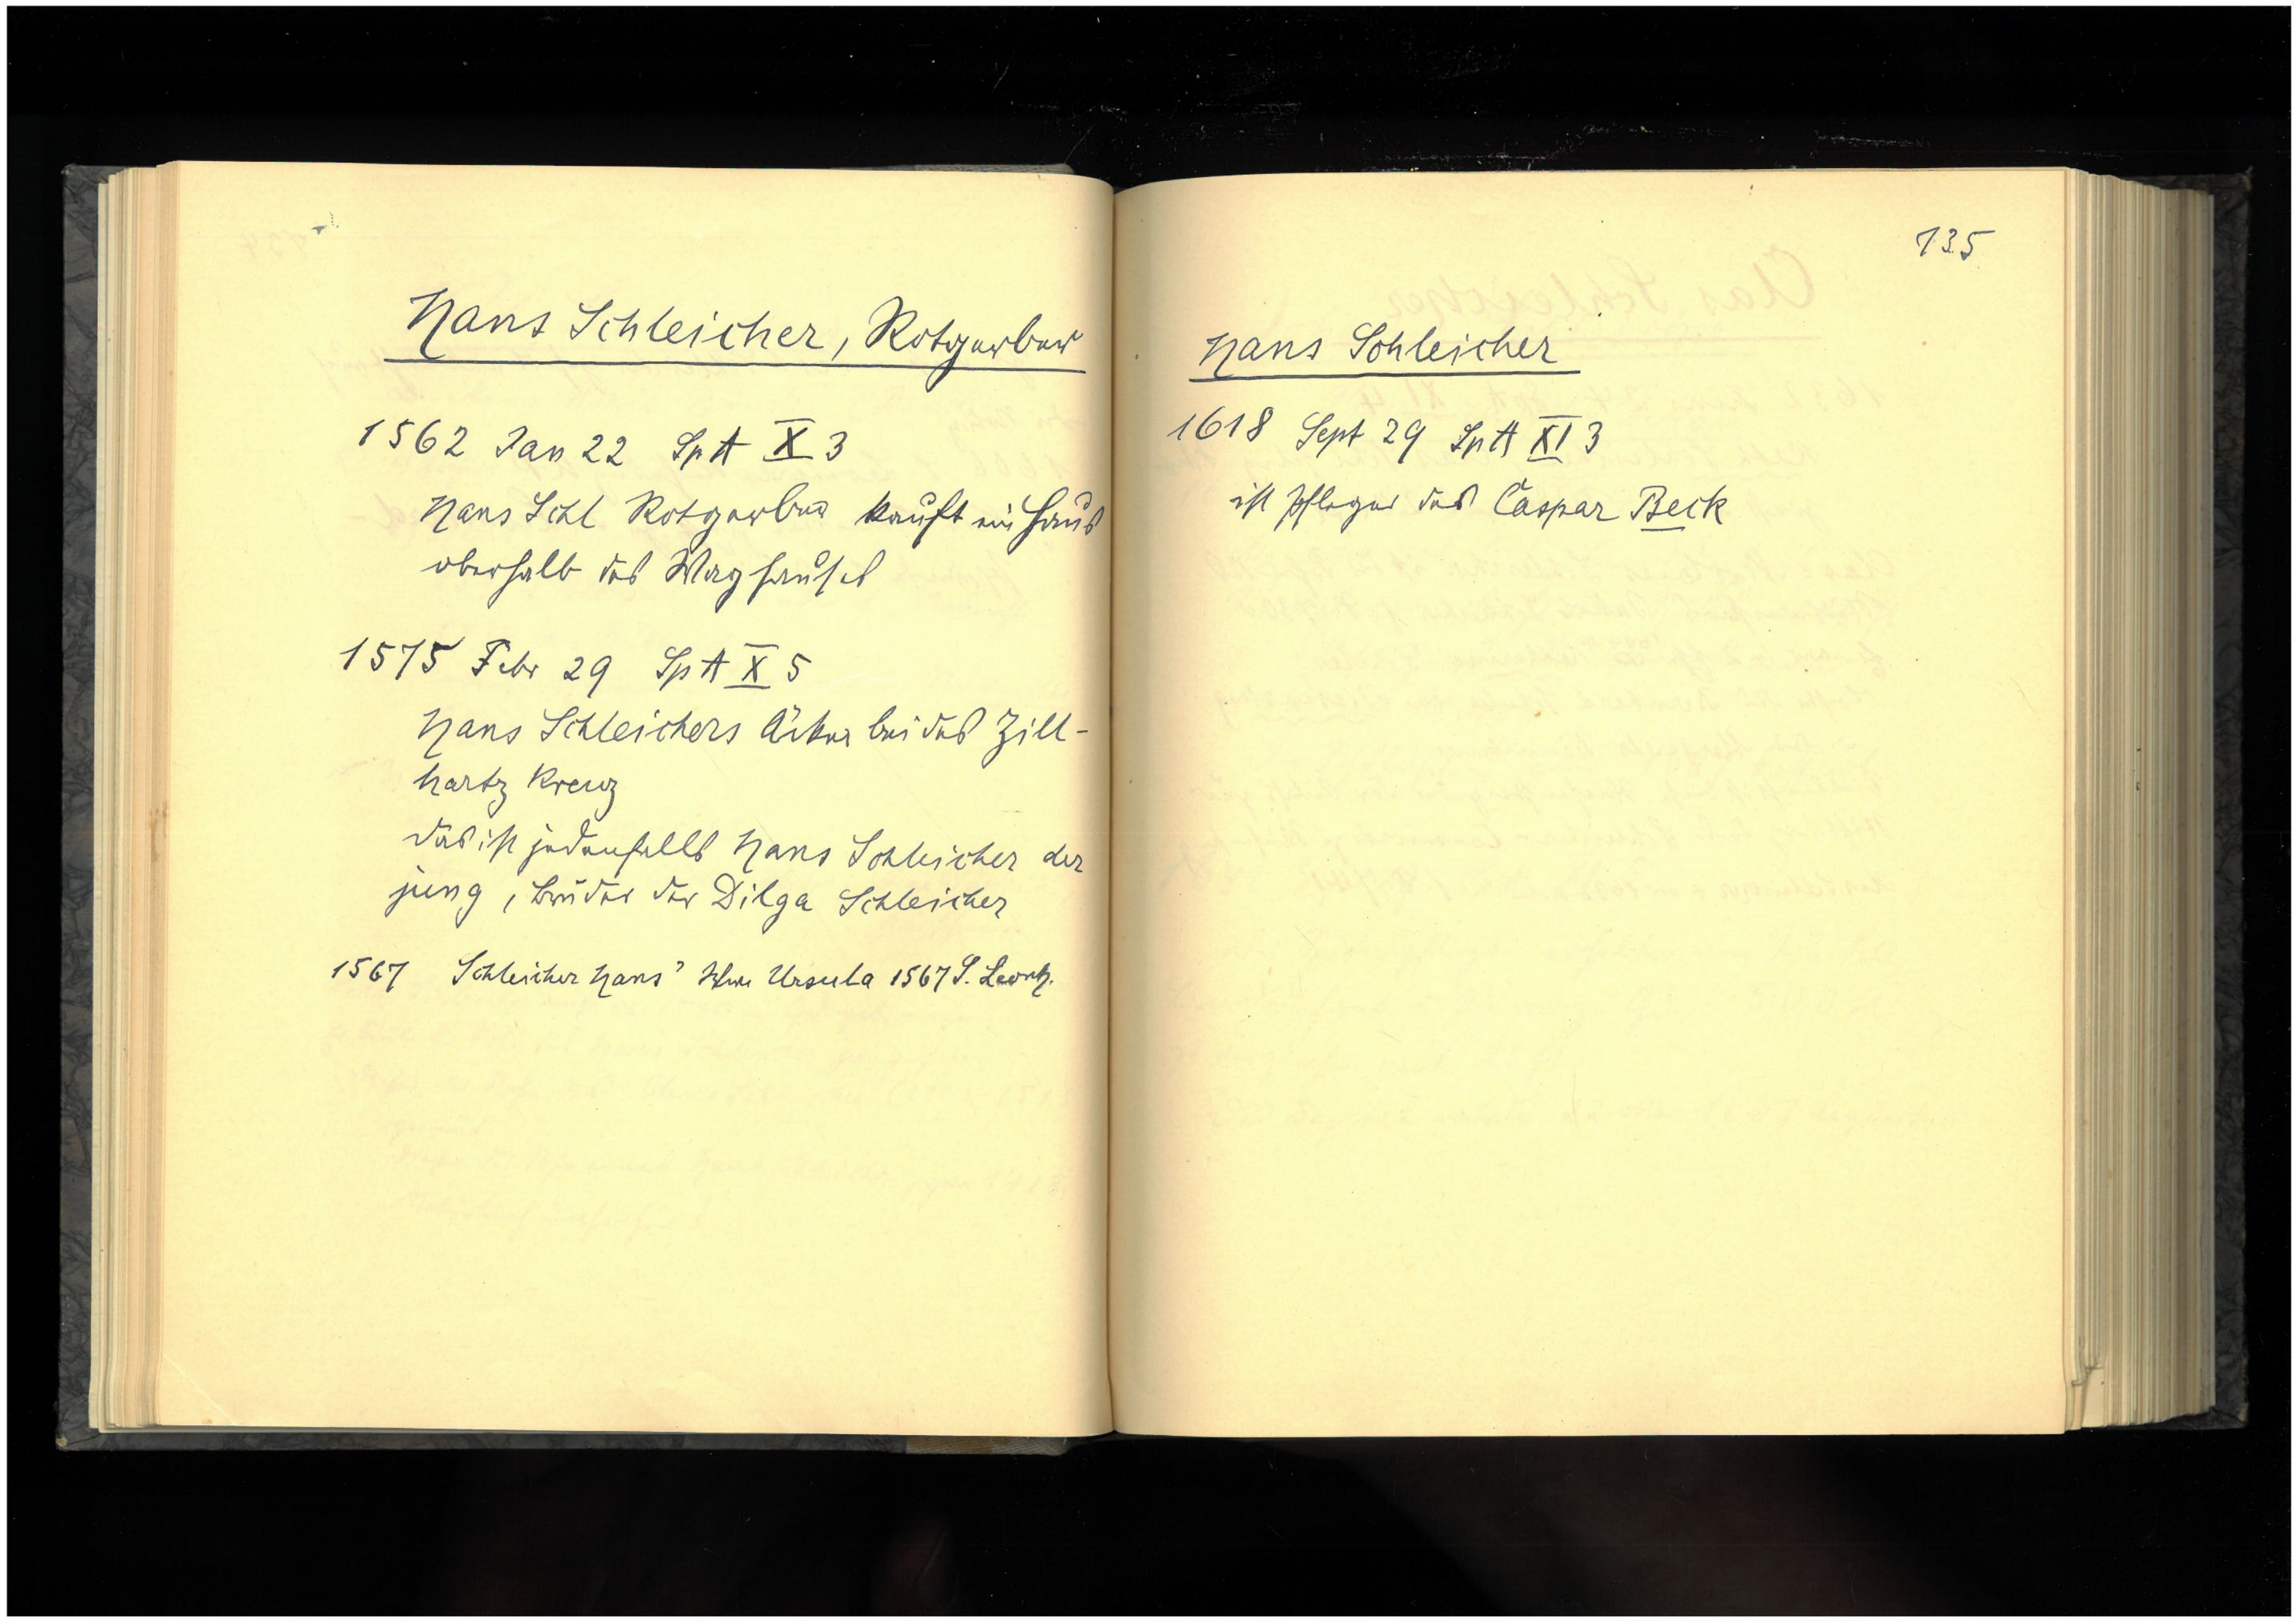 Hans Schleicher, Rotgerber
1562 Jan 22 Sp A X 3
Hans Schl Rotgerber kauft ein Haus
oberhalb des Waghauses
1575 Febr 29 Sp A X 5
Hans Schleichers Äcker bei des Zill-
hartz Kreuz
das ist jedenfalls Hans Schleicher der
jung, Bruder der Dilga Schleicher
1567 Schleicher Hans' Wwe Ursula 1567 S. Leonh.
135
Hans Schleicher
1618 Sept 29 Sp A XI 3
ist Pfleger des Caspar Beck